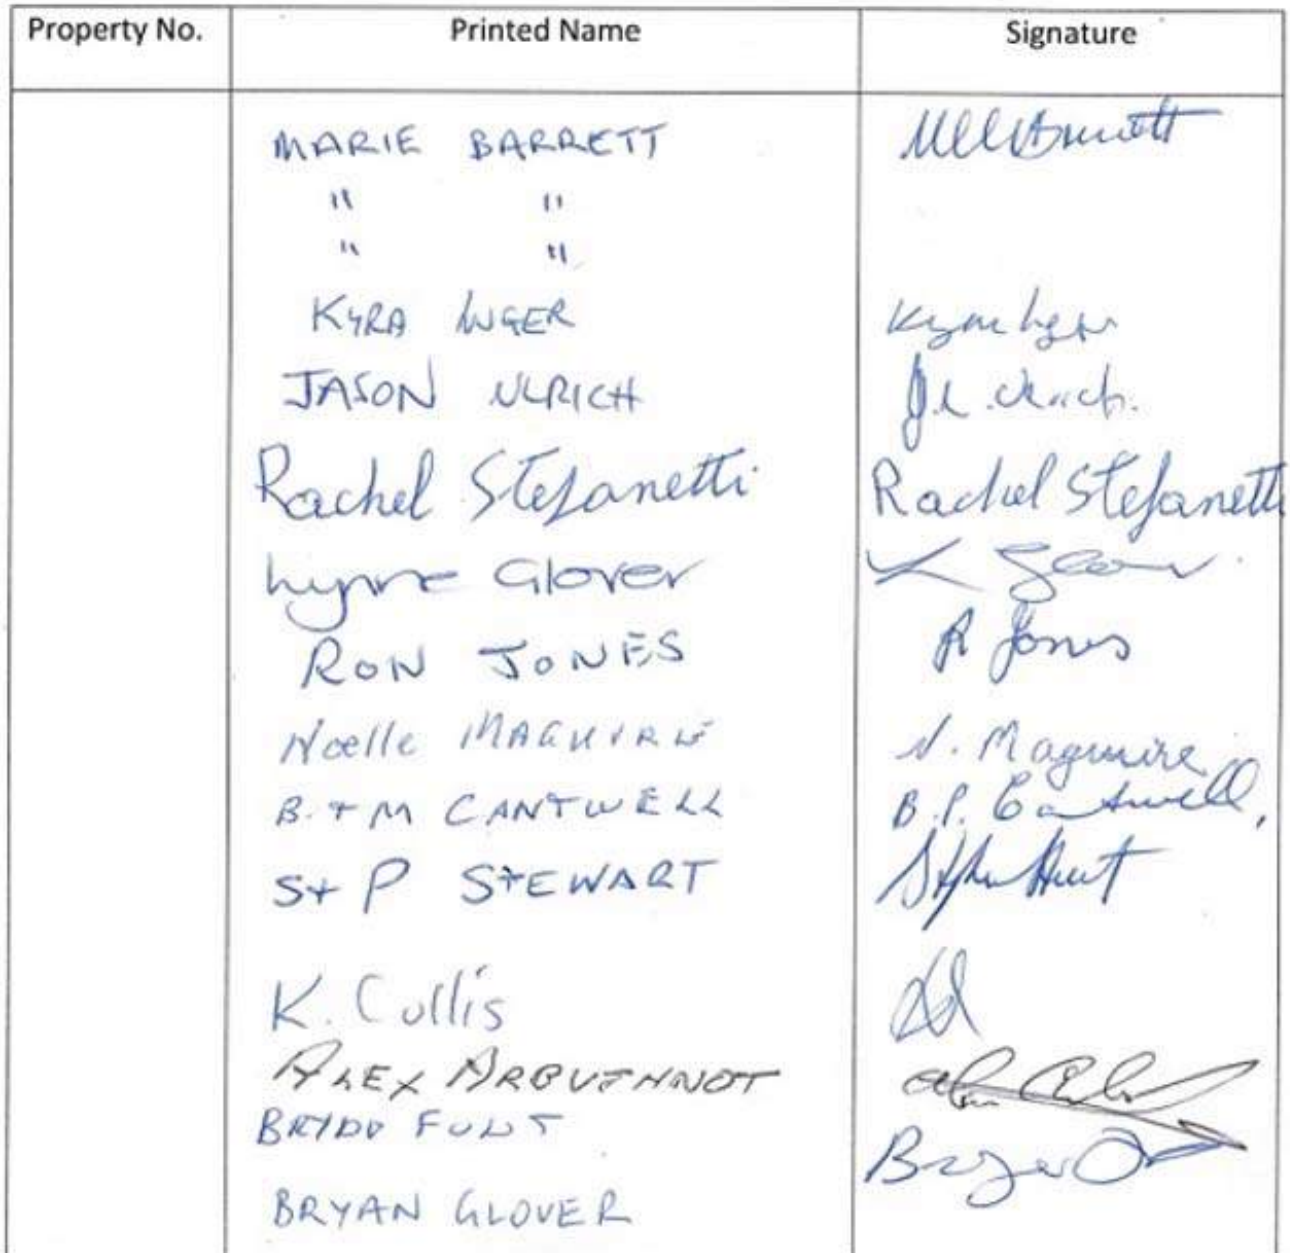 Property No. Printed Name Signature
MARIE BARRETT
" "
" "
KYRA LUGER
JASON ULRICH J.L. Ulrich.
Rachel Stefanetti Rachel Stefanetti
Lynne Glover
RON JONES R Jones
Noelle MAGUIRE N. Maguire
B. + M CANTWELL B.P. Cantwell,
S + P STEWART
K. Collis
ALEX ARBUTHNOT
BRYAN GLOVER